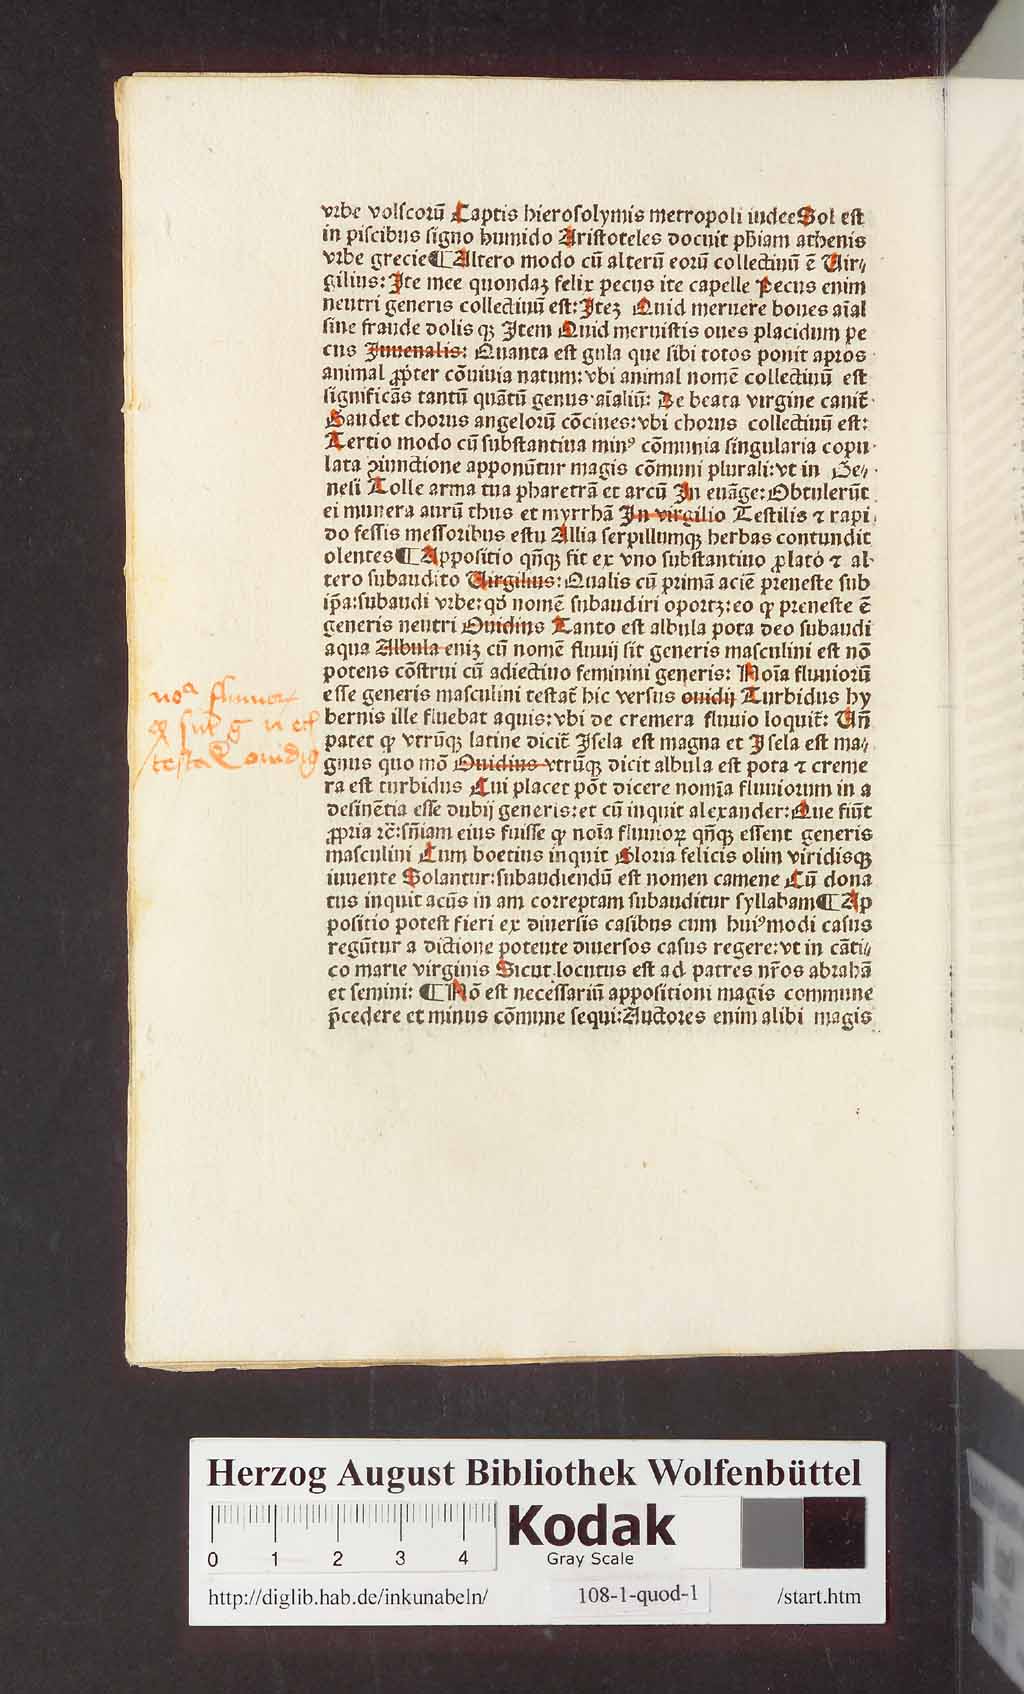 vrbe volscorū Captis hierosolymis metropoli iudee Sol est
in piscibus signo humido Aristoteles docuit ph̄iam athenis
vrbe grecie ¶ Altero modo cū alterū eorū collectiuū ē Uir⸗
gilius: Ite mee quondaꝫ felix pecus ite capelle Pecus enim
neutri generis collectiuū est: Iteꝫ Quid meruere boues aīal
sine fraude dolis qꝫ Item Quid meruistis oues placidum pe
cus Iuuenalis: Quanta est gula que sibi totos ponit apros
animal ꝓpter cōuiuia natum: vbi animal nomē collectiuū est
significās tantū quātū genus aīaliū: De beata virgine canit̄
Gaudet chorus angelorū cōcines: vbi chorus collectiuū est:
Tertio modo cū substantiua minꝰ cōmunia singularia copu
lata ꝯiunctione apponūtur magis cōmuni plurali: vt in Ge⸗
nesi Tolle arma tua pharetrā et arcū In euāge: Obtulerūt
ei munera aurū thus et myrrhā In virgilio Testilis ⁊ rapi
do fessis messoribus estu Allia serpillumqꝫ herbas contundit
olentes ¶ Appositio qn̄qꝫ fit ex vno substantiuo ꝓlato ⁊ al
tero subaudito Uirgilius: Qualis cū primā aciē preneste sub
ip̄a: subaudi vrbe: qd̄ nomē subaudiri oportꝫ: eo ꝙ preneste ē
generis neutri Ouidius Tanto est albula pota deo subaudi
aqua Albula eniꝫ cū nomē fluuij sit generis masculini est nō
potens cōstrui cū adiectiuo feminini generis: Noīa fluuiorū
esse generis masculini testat̄ hic versus ouidij Turbidus hy
bernis ille fluebat aquis: vbi de cremera fluuio loquit̄: Uñ
patet ꝙ vtrūqꝫ latine dicit̄ Isela est magna et Isela est ma⸗
gnus quo mō Ouidius vtrūqꝫ dicit albula est pota ⁊ creme
ra est turbidus Cui placet pōt dicere nomīa fluuiorum in a
desinētia esse dubij generis: et cū inquit alexander: Que fiūt
ꝓpria rē: sn̄iam eius fuisse ꝙ noīa fluuioꝝ qn̄qꝫ essent generis
masculini Cum boetius inquit Gloria felicis olim viridisqꝫ
iuuente Solantur: subaudiendū est nomen camene Cū dona
tus inquit acūs in am correptam subauditur syllabam ¶ Ap
positio potest fieri ex diuersis casibus cum huiꝰmodi casus
regūtur a dictione potente diuersos casus regere: vt in cāti⸗
co marie virginis Sicut locutus est ad patres nr̄os abrahā
et semini: ¶ Nō est necessariū appositioni magis commune
p̄cedere et minus cōmune sequi: Auctores enim alibi magis
noa fluuior
testa ouidij
Herzog August Bibliothek Wolfenbüttel
0 1 2 3 4
Kodak
Gray Scale
http://diglib.hab.de/inkunabeln/ 108-1-quod-1 /start.htm